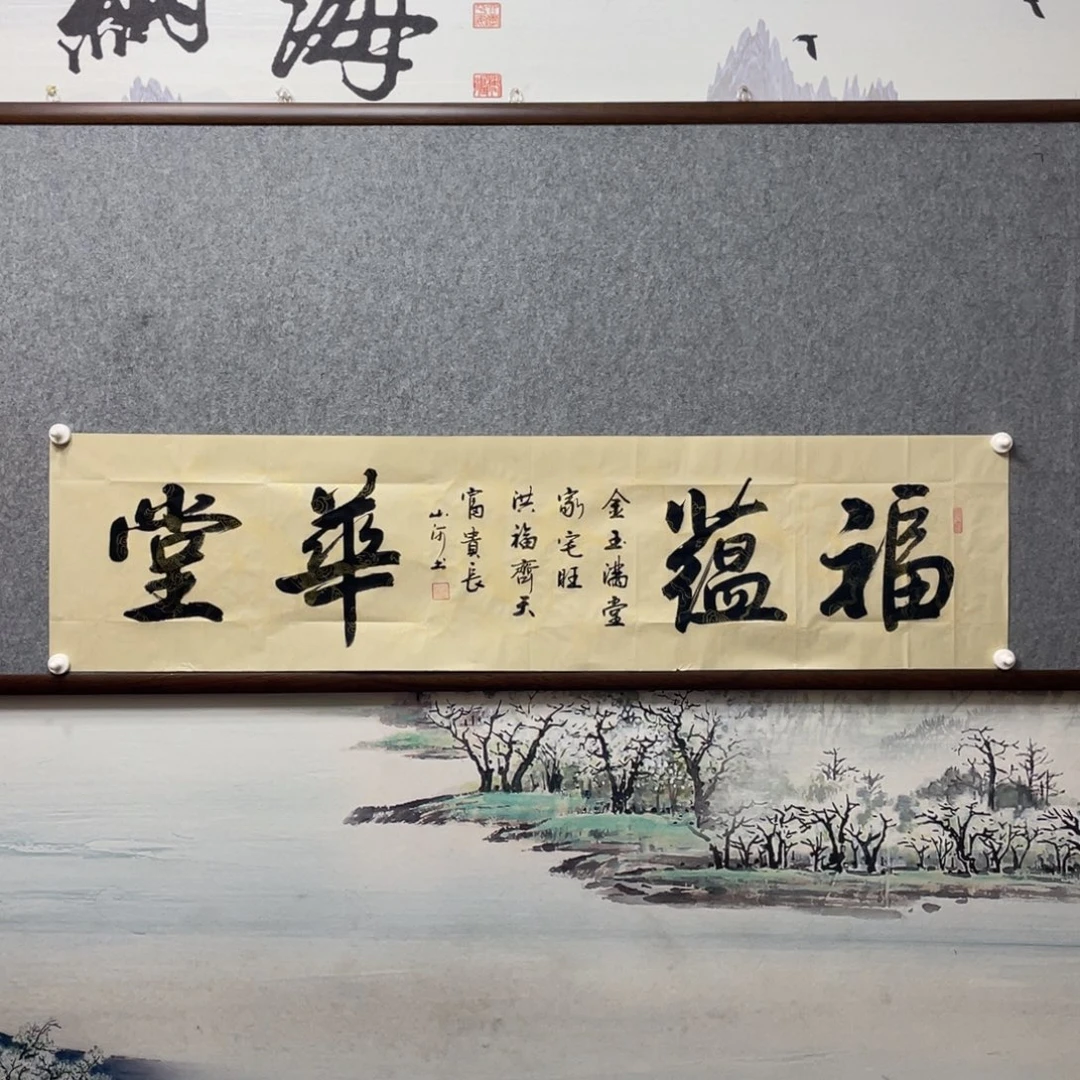 海納
福蘊
金玉滿堂
家宅旺
洪福齊天
富貴長
山河书
華堂